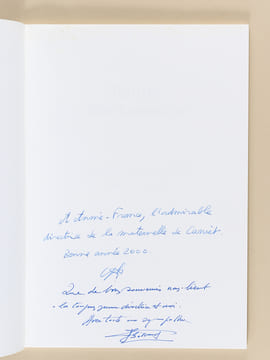 A Annie-France, l'admirable
directrice de la maternelle de Carnet.
Bonne année 2000.
Que de bons souvenirs nous lient
la jeune directrice et moi.
Avec toute ma sympathie